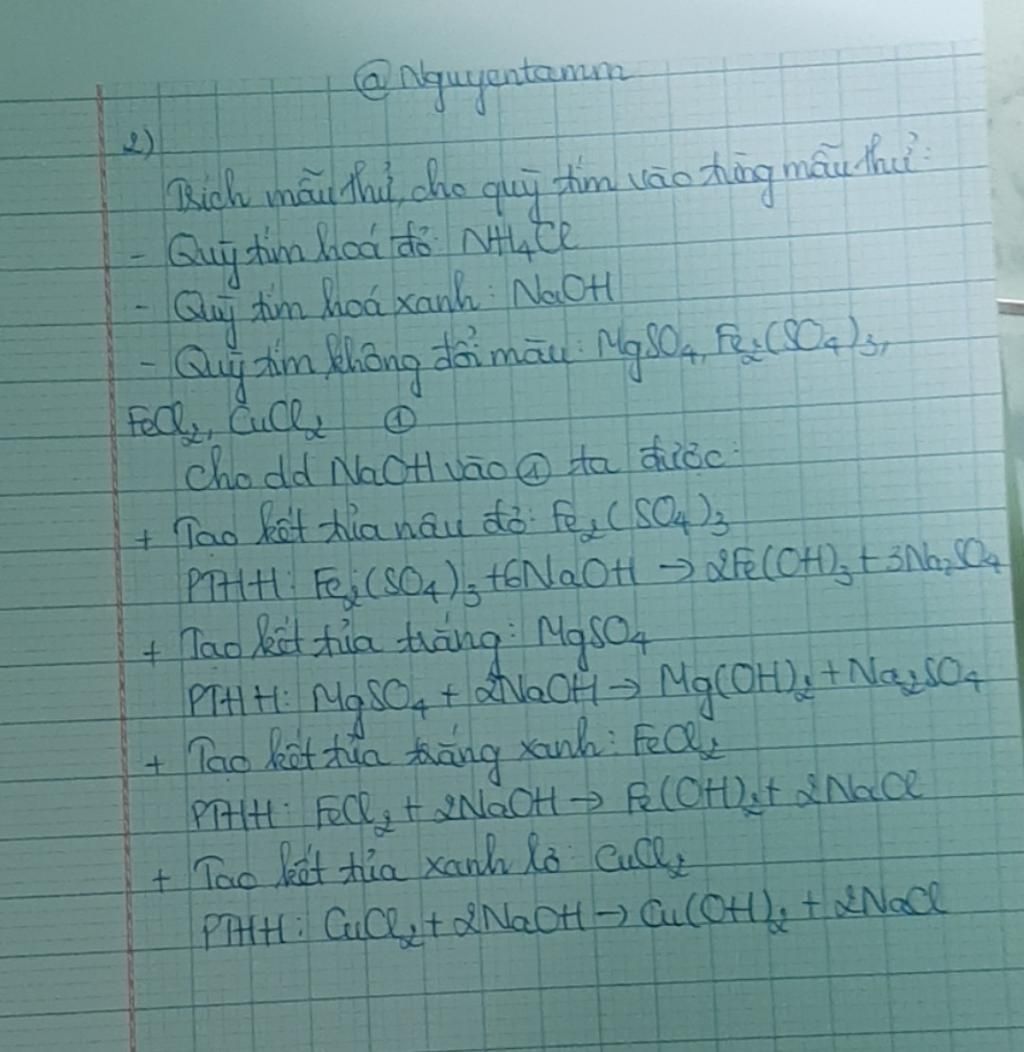 @Nguyentamm
2)
Trích mẫu thử, cho quỳ tím vào từng mẫu thử:
- Quỳ tím hoá đỏ: NH4Cl
- Quỳ tím hoá xanh: NaOH
- Quỳ tím không đổi màu: MgSO4, Fe2(SO4)3,
FeCl2, CuCl2 ①
Cho dd NaOH vào ① ta được:
+ Tạo kết tủa nâu đỏ: Fe2(SO4)3
PTHH: Fe2(SO4)3 + 6NaOH → 2Fe(OH)3 + 3Na2SO4
+ Tạo kết tủa trắng: MgSO4
PTHH: MgSO4 + 2NaOH → Mg(OH)2 + Na2SO4
+ Tạo kết tủa trắng xanh: FeCl2
PTHH: FeCl2 + 2NaOH → Fe(OH)2 + 2NaCl
+ Tạo kết tủa xanh lơ: CuCl2
PTHH: CuCl2 + 2NaOH → Cu(OH)2 + 2NaCl